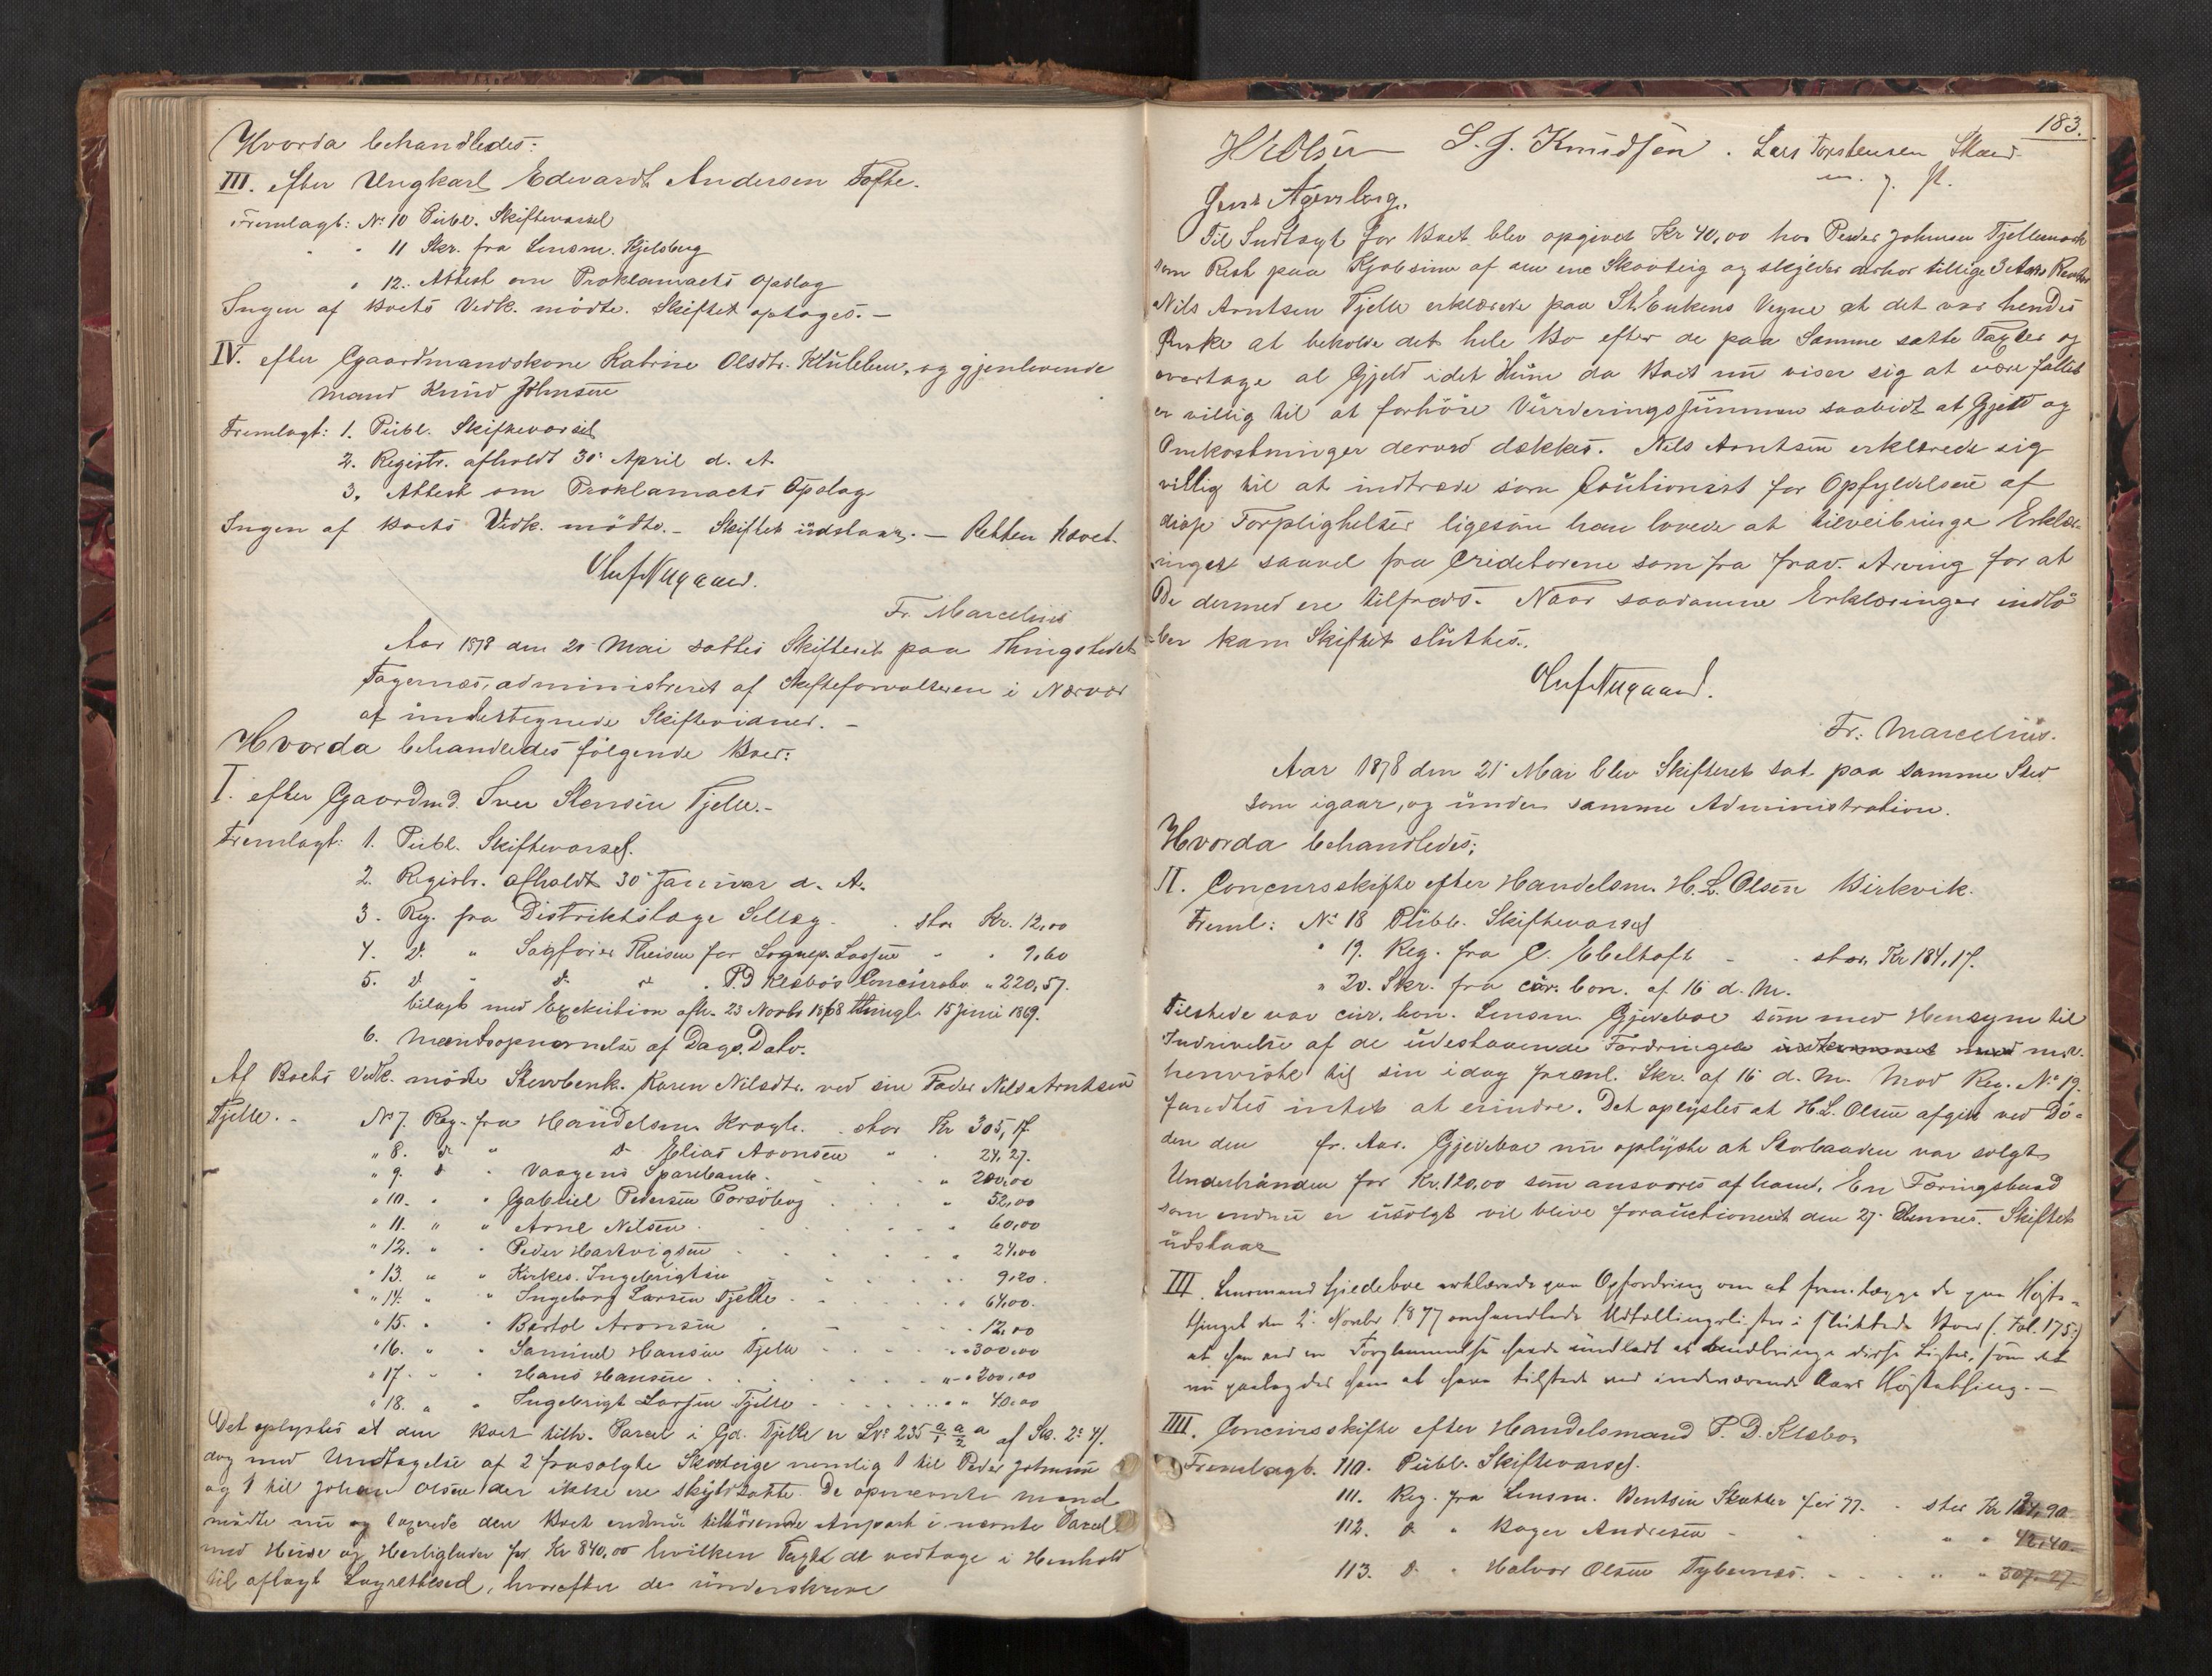 Hvorda behandledes:
III. efter Ungkarl Edevardt Andersen Tofte.
Fremlagt: No 10 Publ. Skiftevarsel
" " 11 Skr. fra Lensm. Kjelsberg
" 12. Attest om Proklamaets Opslag
Ingen af Boets Vedk. mödte. Skiftet optages. —
IV. efter Gaardmandskone Katrine Olsdtr. og gjenlevende
Mand Knud Johnsen
Fremlagt: 1. Publ. Skiftevarsel
2. Registr. afholdt 30 April d. A.
3. Attest om Proklamaets Opslag
Ingen af Boets Vedk. mödte. — Skiftet udstaar. — Retten hævet.
Oluf Nugaard.
Fr. Marcelius
Aar 1878 den 20 Mai sattes Skifteret paa Thingstedet
Fagernæs, administreret af Skifteforvalteren i Nærvær
af undertegnede Skiftevidner. —
Hvorda behandledes fölgende Boer:
I. efter Gaardmd. Iver Stensen Fjelle. -
Fremlagt: 1. Publ. Skiftevarsel.
2. Registr. afholdt 30 Januar d. A.
3. Reg. fra Distriktslæge Selläg. . stor Kr. 12,00
4. D. " Sagförer Theisen for Sognep. Lassen " " 9,60
5. D. " D. " P.D Klæbös Concursbo " 220,57.
bilagt med Exekution afh. 23 Novbr 1868 thingl. 15 Juni 1869.
6. Mændsopnævnelse af Dags. Dato.
Af Boets Vedk. mödte Stervbenk. Karen Nilsdtr. ved sin Fader Nils Arntsen
Fjelle. - No 7. Reg. fra Handelsm. Krogh. . stor Kr 305,17
" 8. D. " D. Elias Aronsen " . 24,27.
" 9. D. " Vaagens Sparebank. . . " 200,00
" 10. " " Gabriel Pedersen Torsöberg . . . " 52,00
" 11. " " Arne Nilsen . . . . " 60,00
" 12. " " Peder Hartvigsen . . . . " 24,00
" 13. " " Kirkes. Ingebrigtsen . . . . 9,20.
" 14. " " Ingeborg Larsen Fjelle . . . " 64,00.
" 15. " " Bertol Aronsen . . . . 12,00
" 16. " " Samuel Hansen Fjelle . . . " 300,00
" 17. " " Hans Hansen . . . . " 200,00
" 18. " " Ingebrigt Larsen Fjelle . . . . " 40,00
Det oplystes at den Boet tilh. Parcel i Gd. Fjelle er LNo 235 a/1 a/2 a af Sk. 2: 4.
dog med Undtagelse af 2 frasolgte Skovteige nemlig 1 til Peder Johnsen
og 1 til Johan Olsen der ikke ere skyldsatte. De opnævnte Mænd
mödte nu og taxerede den Boet endnu tilhörende Anpart i nævnte Parcel
med Huse og Herligheder for Kr 840,00 hvilken Taxt de vedtoge i Henhold
til aflagt Lagrettesed, hvorefter de underskrive
183.
HK Olsen S. J. Knudsen. Lars Torstensen
m. f. P.
Jens Agersborg.
Til Indtægt for Boet blev opgivet Kr 40,00 hos Peder Johnsen Fjellemark
som Rest paa Kjöbsum af den ene Skovteig og skylder derhos tillige 3 Aars Renter
Nils Arntsen Fjelle erklærede paa St.Enkens Vegne at det var hendes
Önske at beholde det hele Bo efter de paa Samme satte Taxter og
overtage al Gjeld idet Hun da Boet nu viser sig at være fallit
er villig til at forhöie Vurderingssummen saavidt at Gjeld og
Omkostninger derved dækkes. Nils Arntsen erklærede sig
villig til at indtræde som Cautionist for Opfyldelsen af
disse Forpligtelser ligesom han lovede at tilveiebringe Erklæ-
ringer saavel fra Creditorene som fra frav. Arving for at
De dermed ere tilfreds. Naar saadanne Erklæringer indlö-
ber kan Skiftet sluttes.
Oluf Nugaard.
Fr. Marcelius.
Aar 1878 den 21 Mai blev Skifteret sat paa samme Sted
som igaar, og under samme Administration.
Hvorda behandledes;
II. Concursskifte efter Handelsm. H.L. Olsen Birkvik.
Freml: No 18 Publ. Skiftevarsel
" 19. Reg. fra C. Ebeltoft - - stor, Kr 184,17.
" 20. Skr. fra cur. bon. af 16 d. M.
Tilstede var cur. bon. Lensm. Gjedeboe som med Hensyn til
Indrivelse af de udestaaende Fordringer
henviste til sin idag freml. Skr. af 16 d. M. Mod Reg. No 19
fandtes intet at erindre. Det oplystes at H.L. Olsen afgik ved Dö-
den den fr. Aar. Gjedeboe nu oplyste at Storbaaden var solgt
Underhaanden for Kr. 120,00 som ansvares af ham. En Færingsbaad
som endnu er usolgt vil blive forauctioneret den 27 dennes. Skiftet
udstaar
III. Lensmand Gjedeboe erklærede paa Opfordring om at fremlægge de paa Höst-
thinget den 2. Novbr 1877 omhandlede Udtællingslister i sluttede Boer (. Fol. 175.)
at han ved en Forglemmelse havde undladt at medbringe disse Lister, som det
nu paalagdes ham at have tilstede ved indeværende Aars Höstething. —
IIII. Concursskifte efter Handelsmand P. D. Klæbo,
Fremlagt. 110. Publ. Skiftevarsel.
111. Reg. fra Lensm. Bentsen Skatter for 77. . stor Kr 90
112. D. " Roger Andresen - - " " 42,40.
113. D. " Halvor Olsen . - . " " 307,27.